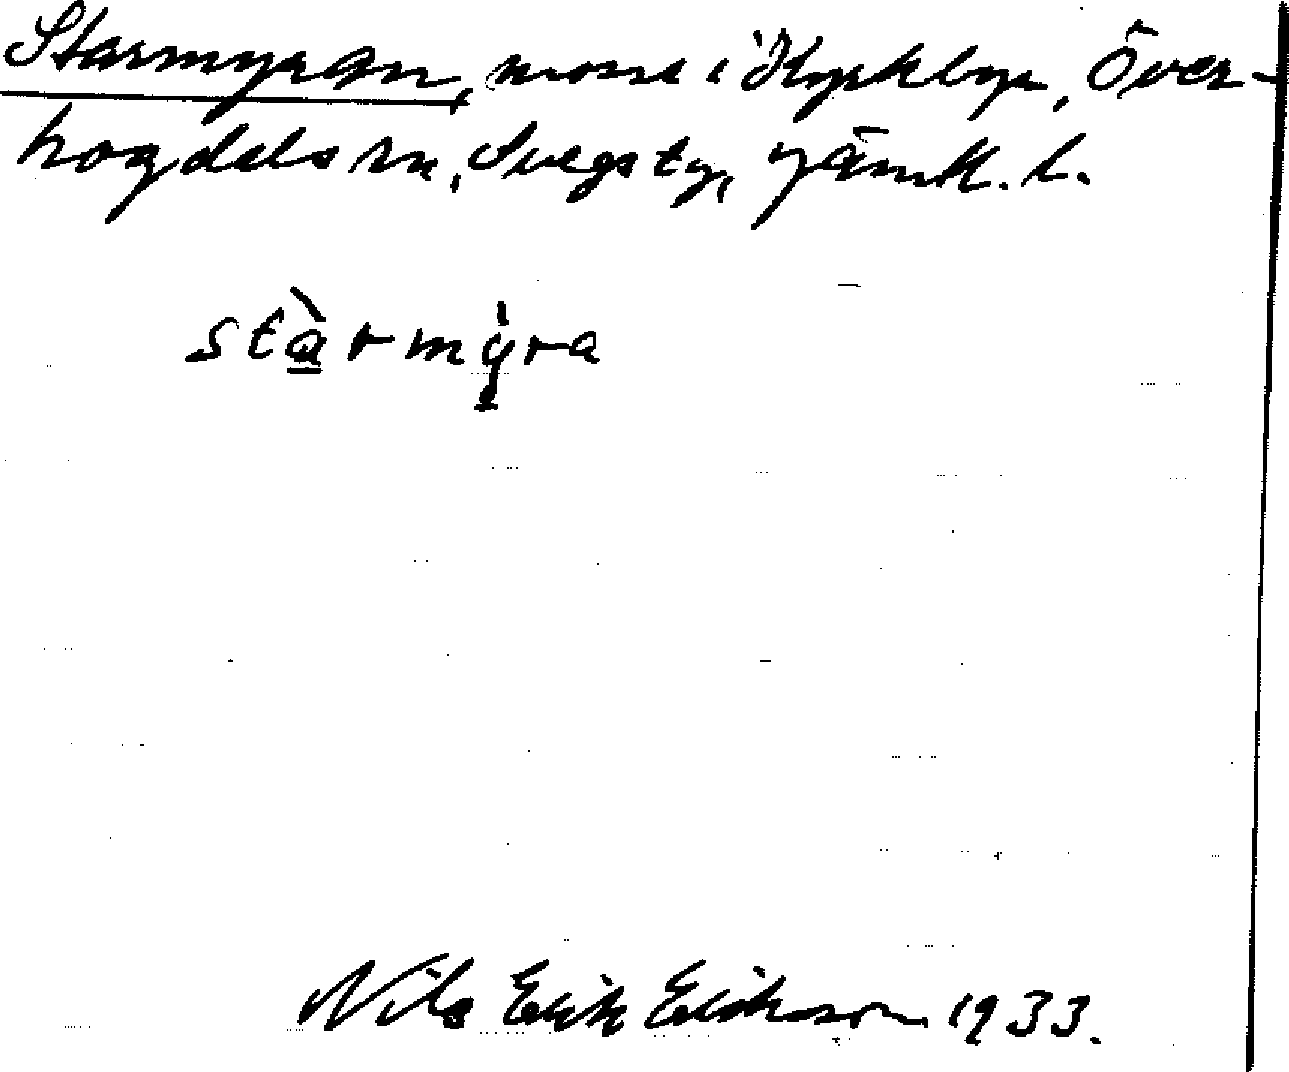 Starmyran, mosse i Kyrkbyn, Över-
hogdals sn, Svegs tg, Jämtl. l.
stàrmỳra
Nils Erik Eriksson 1933.